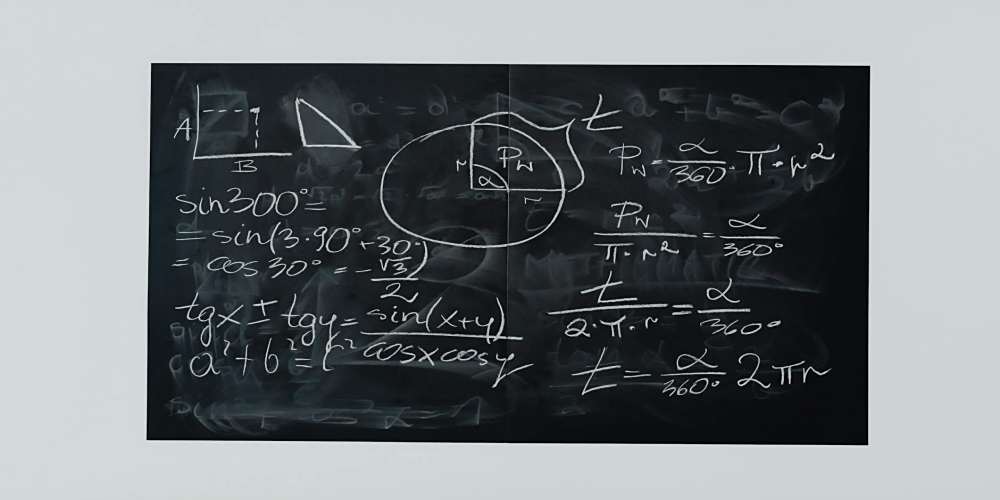 A
B
sin300°=
= sin(3·90°+30°)
= cos30° = -√3/2
tgx ± tgy = sin(x+y)/cosxcosy
a²+b²=c²
t
r
α
P_w
r
P_w = α/360° · π · r²
P_w/π·r² = α/360°
t/2·π·r = α/360°
t = α/360° 2πr